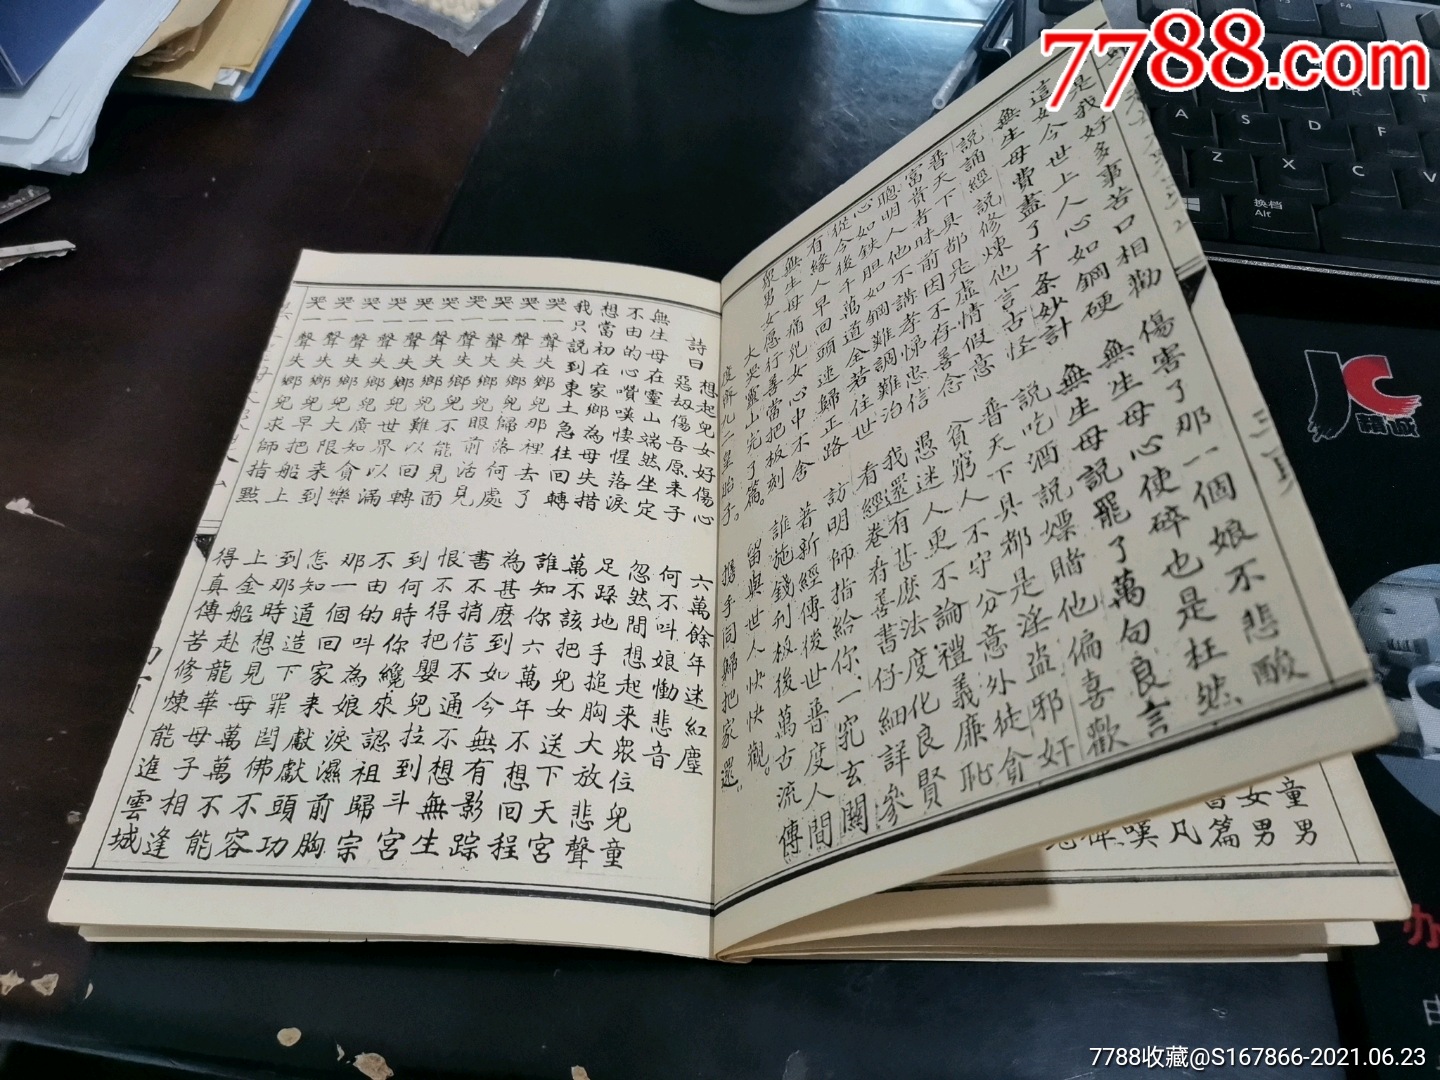 是我好多事苦口相勸 傷害了那一個娘不悲酸
這如今世上人心如鋼硬 無生母心使碎也是枉然
無生母費盡了千条妙計 無生母說罷了萬句良言
說誦經說修煉他言古怪 說吃酒說嫖賭他偏喜歡
普天下具都是虛情假意 普天下具都是淫盜邪奸
富貴者昧前因不存善念 貧窮人不守分意外徒貪
聰明人他不講孝悌忠信 愚迷人更不論禮義廉恥
心如鉄胆如鋼難調難治 我還有甚麽法度化良賢
從今後千萬道全若住世 看經卷看善書仔細詳參
有緣人早回頭速歸正路 訪明師指給你一究玄關
無生母痛兒女心中不舍 著新經傳後世普度人間
眾男女愿行善當把板刻 誰施錢刊板後萬古流傳
大哭靈山完了篇。 留與世人快快觀。
九二皇胎子。 攜手同歸把家還。
詩曰 想起兒女好傷心 六萬餘年迷紅塵
惡劫傷吾原来子 何不叫娘慟悲音
無生母在靈山端然坐定 忽然間想起来眾位兒童
不由的心嘖嘆悽惺落淚 足跺地手搥胸大放悲聲
想當初在家鄉為母失措 萬不該把兒女送下天宮
我只說到東土急往回轉 誰知你六萬年不想回程
哭一聲失鄉兒那裡去了 為甚麽到如今無有影踪
哭一聲失鄉兒歸落何處 書不捎信不通不想無生
哭一聲失鄉兒眼前活見 恨不得把嬰兒拉到斗宮
哭一聲失鄉兒不能見面 到何時你纔求認祖歸宗
哭一聲失鄉兒難以回轉 不由的叫為娘淚濕前胸
哭一聲失鄉兒世界以滿 那一個回家来獻獻頭功
哭一聲失鄉兒廣貪樂 怎知道造下罪閻佛不容
哭一聲失鄉兒大限来到 到那時想見母萬萬不能
哭一聲失鄉兒早把船上 上金船赴龍華母子相逢
哭一聲失鄉兒求師指點 得真傳苦修煉能進雲城
童男
女男
篇
凡
嘆
7788.com
精诚
换档
Alt
A
S
D
Z
X
C
办
7788收藏@S167866-2021.06.23